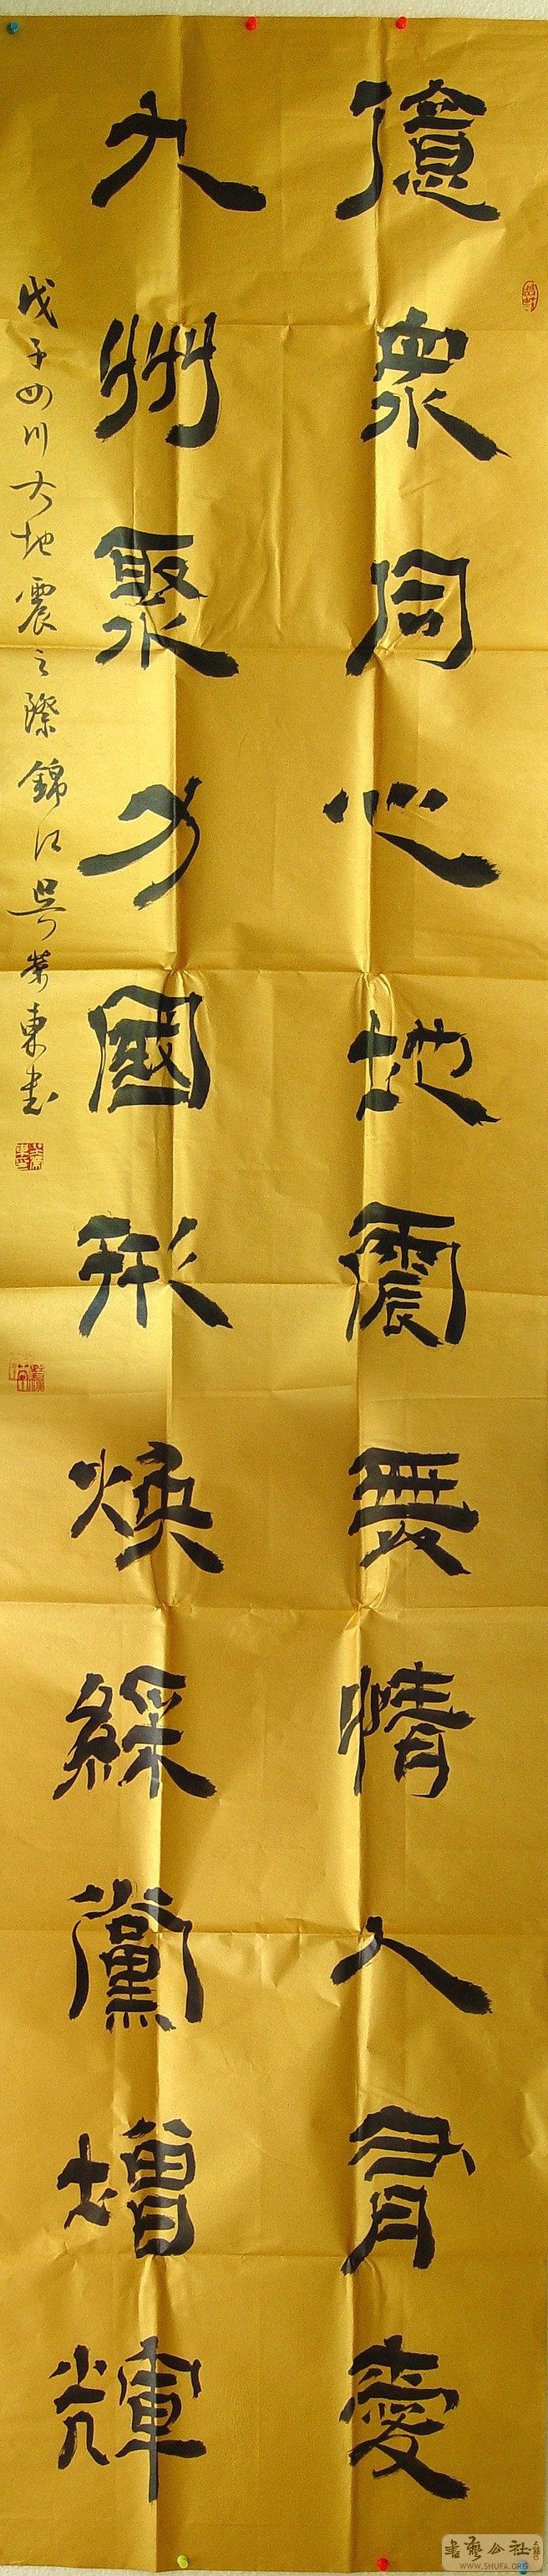 億衆同心地震無情人有愛
九州聚力國形煥綵黨增輝
戊子四川大地震之際錦江吳榮東書
書藝公社
WWW.SHUFA.ORG